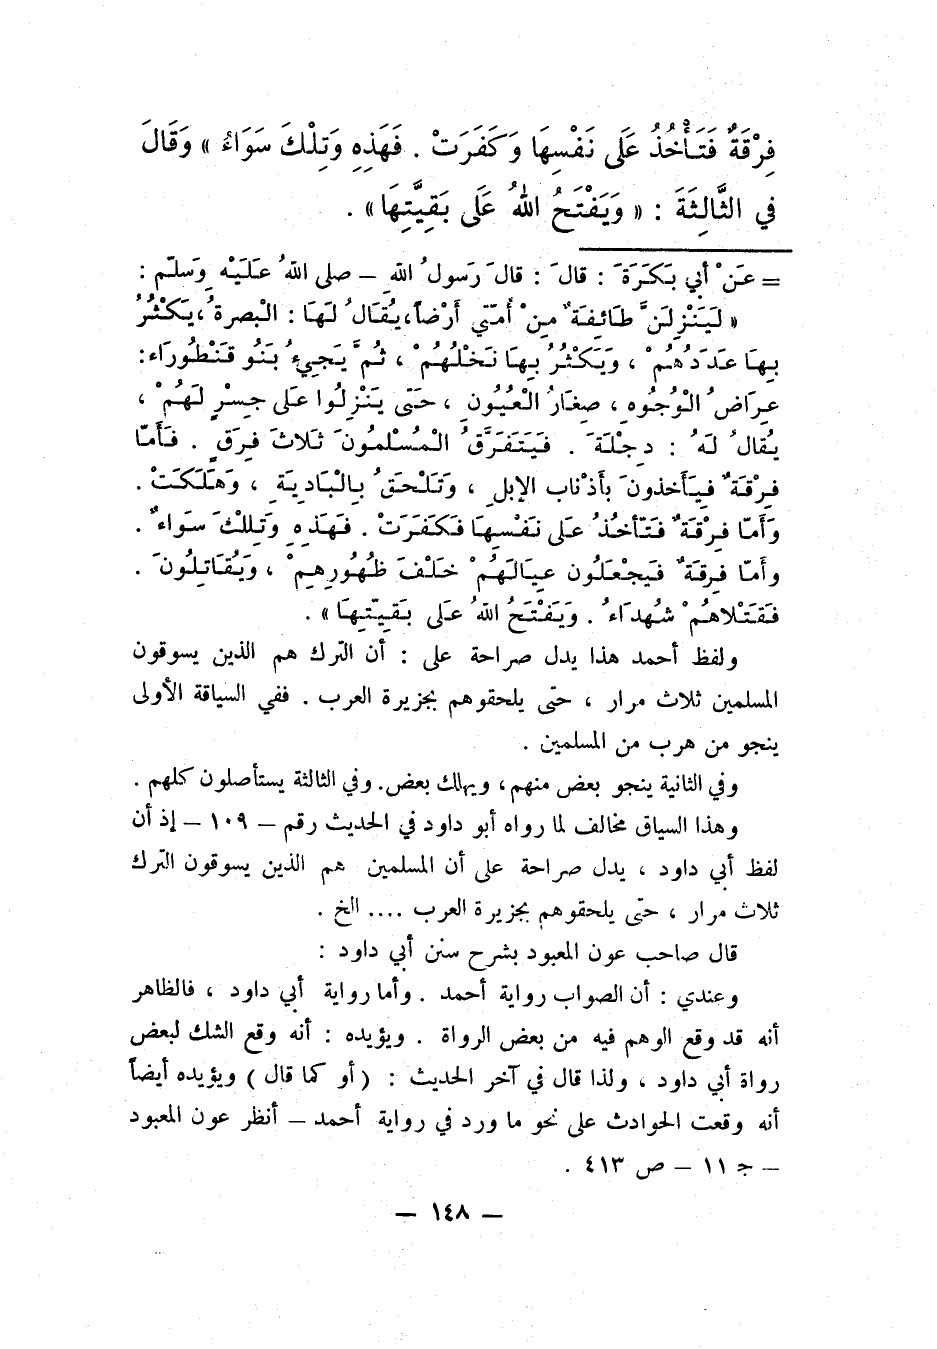 فِرْقَةٌ فَتَأْخُذُ عَلَى نَفْسِهَا وَكَفَرَتْ . فَهَذِهِ وَتِلْكَ سَوَاءٌ » وَقَالَ
في الثَّالِثَةَ : « وَيَفْتَحُ اللهُ عَلَى بَقِيَّتِهَا » .
= عَنْ أبي بَكَرَةَ : قالَ : قالَ رَسولُ اللهِ – صلى اللهُ عَلَيْهِ وَسَلّم :
« لَيَنْزِلَنَّ طَائِفَةٌ مِنْ أُمَّتي أَرْضاً، يُقَالُ لَهَا : الْبَصرةُ، يَكْثُرُ
بِهَا عَدَدُهُمْ ، وَيَكْثُرُ بِهَا نَخْلُهُمْ ، ثُمَّ يَجِيءُ بَنُو قَنْطُورَاء:
عِرَاضُ الْوُجُوهِ ، صِغَارُ الْعُيُونِ ، حَتّى يَنْزِلُوا عَلى جِسْرٍ لَهُمْ ،
يُقالُ لَهُ : دِجْلَةَ . فَيَتَفَرَّقُ الْمُسْلمُونَ ثَلاثَ فِرَقٍ . فَأَمّا
فِرْقَةٌ فَيَأخذونَ بأذْناب الإبلِ ، وَتَلْحَقُ بِالْبَادِيَةِ ، وَهَلَكَتْ .
وَأَمّا فِرْقَةٌ فَتَأخُذُ عَلى نَفْسِهَا فَكَفَرَتْ . فَهَذِهِ وَتِلْكَ سَوَاءٌ .
وأَمّا فِرقَةٌ فَيجْعَلُون عِيالَهُمْ خَلْفَ ظُهُورِهِمْ ، وَيُقَاتِلُونَ .
فَقَتْلاهُمْ شُهدَاءُ . وَيَفْتَحُ اللهُ عَلى بَقِيّتِهَا » .
ولفظ أحمد هذا يدل صراحة على : أن الترك هم الذين يسوقون
المسلمين ثلاث مرار ، حتّى يلحقوهم بجزيرة العرب . ففي السياقة الأولى
ينجو من هرب من المسلمين .
وفي الثانية ينجو بعض منهم، ويهلك بعض. وفي الثالثة يستأصلون كلهم .
وهذا السياق مخالف لما رواه أبو داود في الحديث رقم – ١٠٩ – إذ أن
لفظ أبي داود ، يدل صراحة على أن المسلمين هم الذين يسوقون الترك
ثلاث مرار ، حتّى يلحقوهم بجزيرة العرب .... الخ .
قال صاحب عون المعبود بشرح سنن أبي داود :
وعندي : أن الصواب رواية أحمد . وأما رواية أبي داود ، فالظاهر
أنه قد وقع الوهم فيه من بعض الرواة . ويؤيده : أنه وقع الشك لبعض
رواة أبي داود ، ولذا قال في آخر الحديث : ( أو كما قال ) ويؤيده أيضاً
أنه وقعت الحوادث على نحو ما ورد في رواية أحمد – أنظر عون المعبود
– جـ ١١ – ص ٤١٣ .
– ١٤٨ –